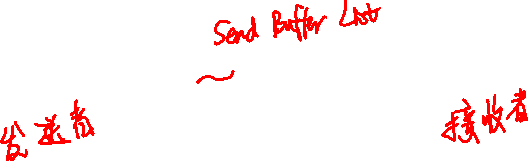 Send Buffer List
~
发送者
接收者